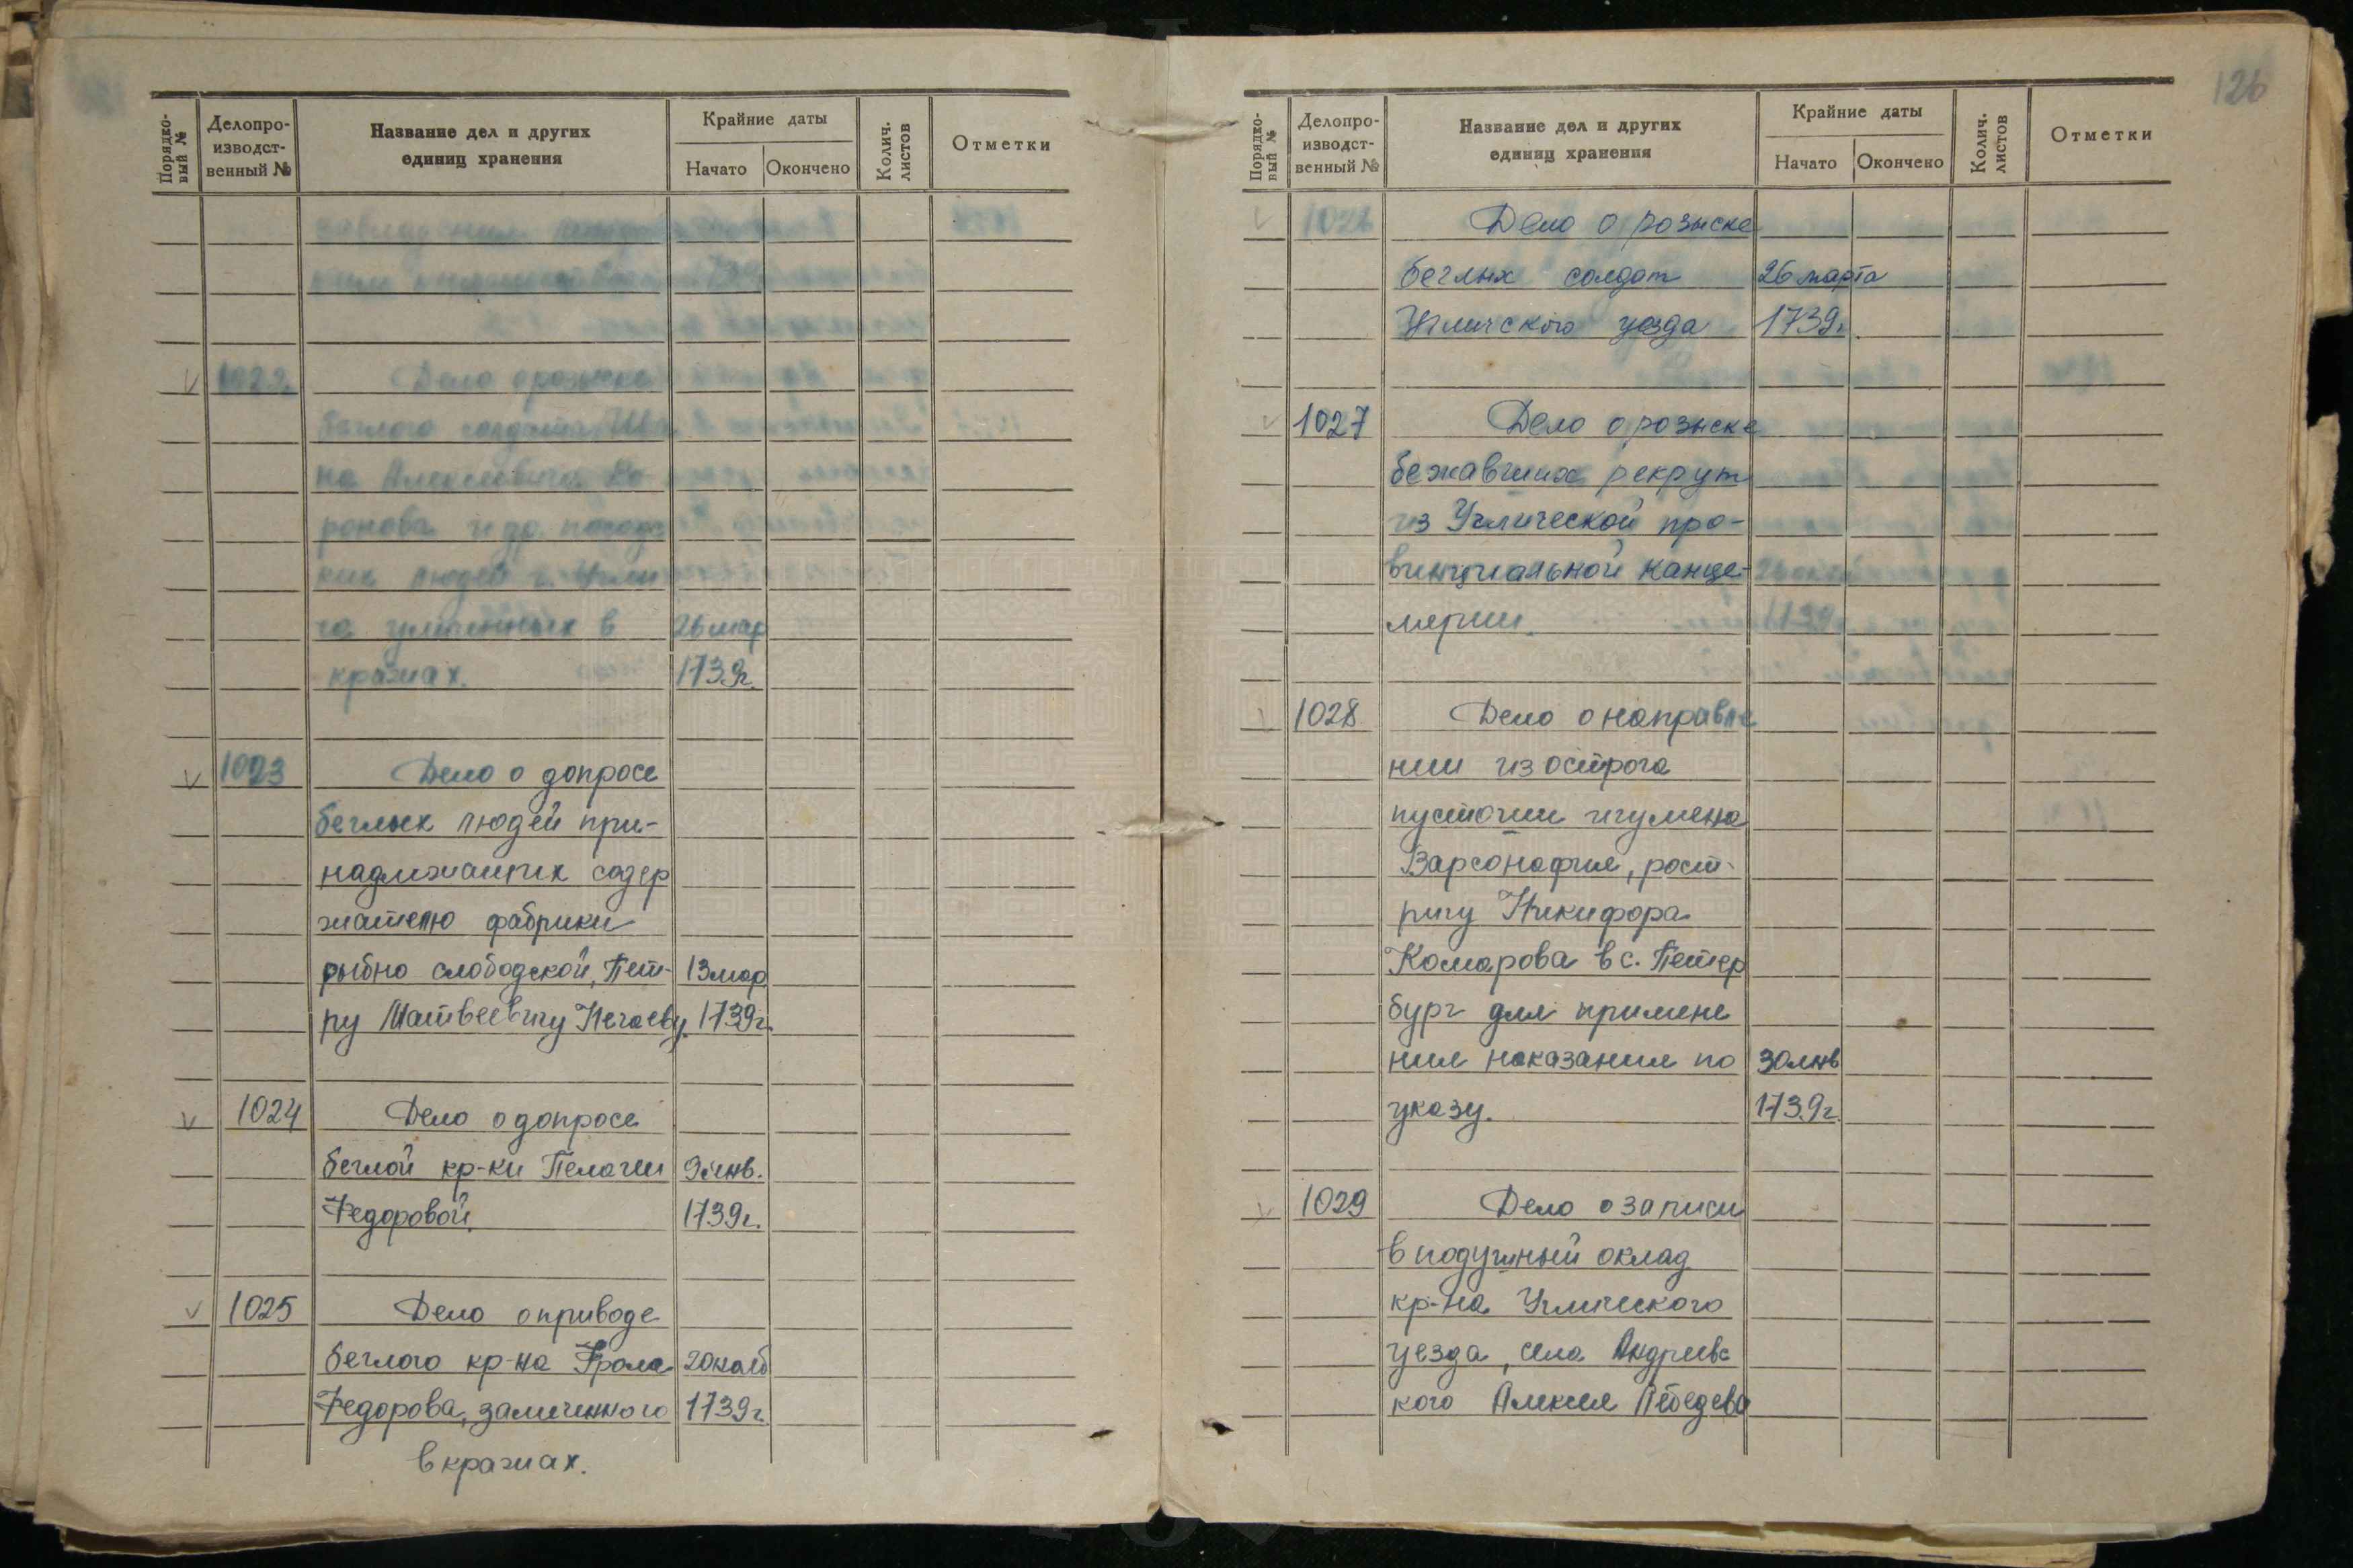 Порядко-
вый №
Делопро-
изводст-
венный №
Название дел и других
единиц хранения
Крайние даты
Начато
Окончено
Колич.
листов
Отметки
1022
Дело о розыске
беглого солдата Ива
на Алексеевича
и др.
ких людей г. Угли
ча уличенных в
26 мар
кражах.
1739г.
1023
Дело о допросе
беглых людей при-
надлежащих содер
жателю фабрики
рыбно слободской, Пет-
13 мар
ру Матвеевичу Нечаеву.
1739г.
1024
Дело о допросе
беглой кр-ки Пелагеи
9 янв.
Федоровой.
1739г.
1025
Дело о приводе
беглого кр-на Фрола
20 нояб
Федорова, замеченного
1739г.
в кражах.
126
Порядко-
вый №
Делопро-
изводст-
венный №
Название дел и других
единиц хранения
Крайние даты
Начато
Окончено
Колич.
листов
Отметки
1026
Дело о розыске
беглых солдат
26 марта
Угличского уезда
1739г.
1027
Дело о розыске
бежавших рекрут
из Углической про-
винциальной канце-
лярии.
1028
Дело о направле
нии из острога
пусточии игумена
Варсонофия, рост-
ригу Никифора
Комарова в с. Петер
бург для примене
ния наказания по
30 янв
указу.
1739г.
1029
Дело о записи
в подушный оклад
кр-на Углического
уезда, села Андреевс
кого Алексея Лебедева